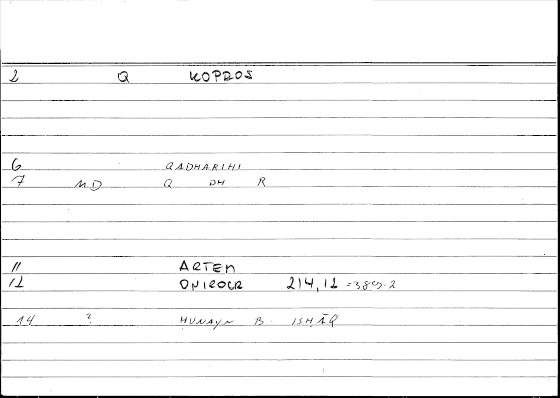 2 Q KOPROS
6 QADHARIHI
7 MD Q DH R
11 ARTEM
12 ONIROCR 214,12 =389.2
14 ? ḤUNAYN B. ISḤĀQ